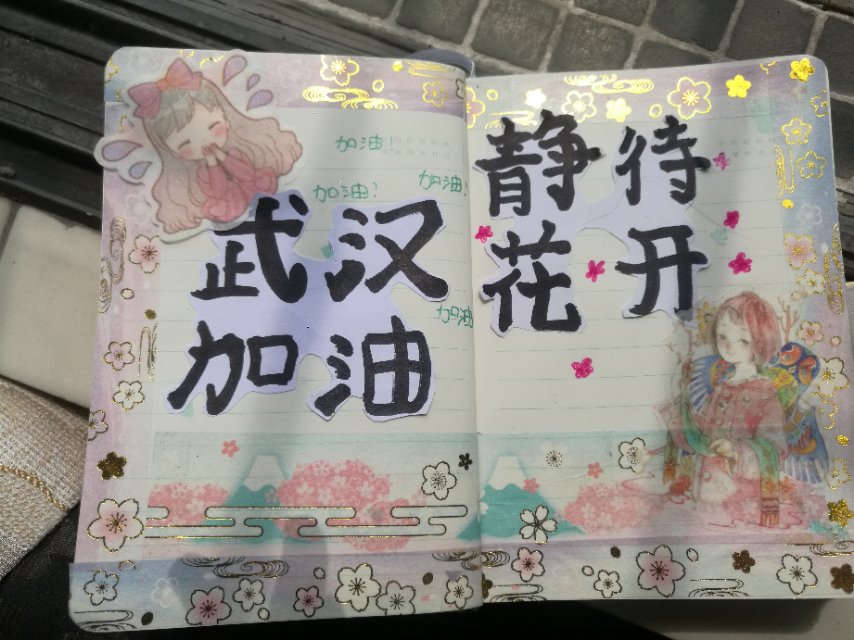 加油!
加油!
加油!
武汉
加油
加油
静待
花开